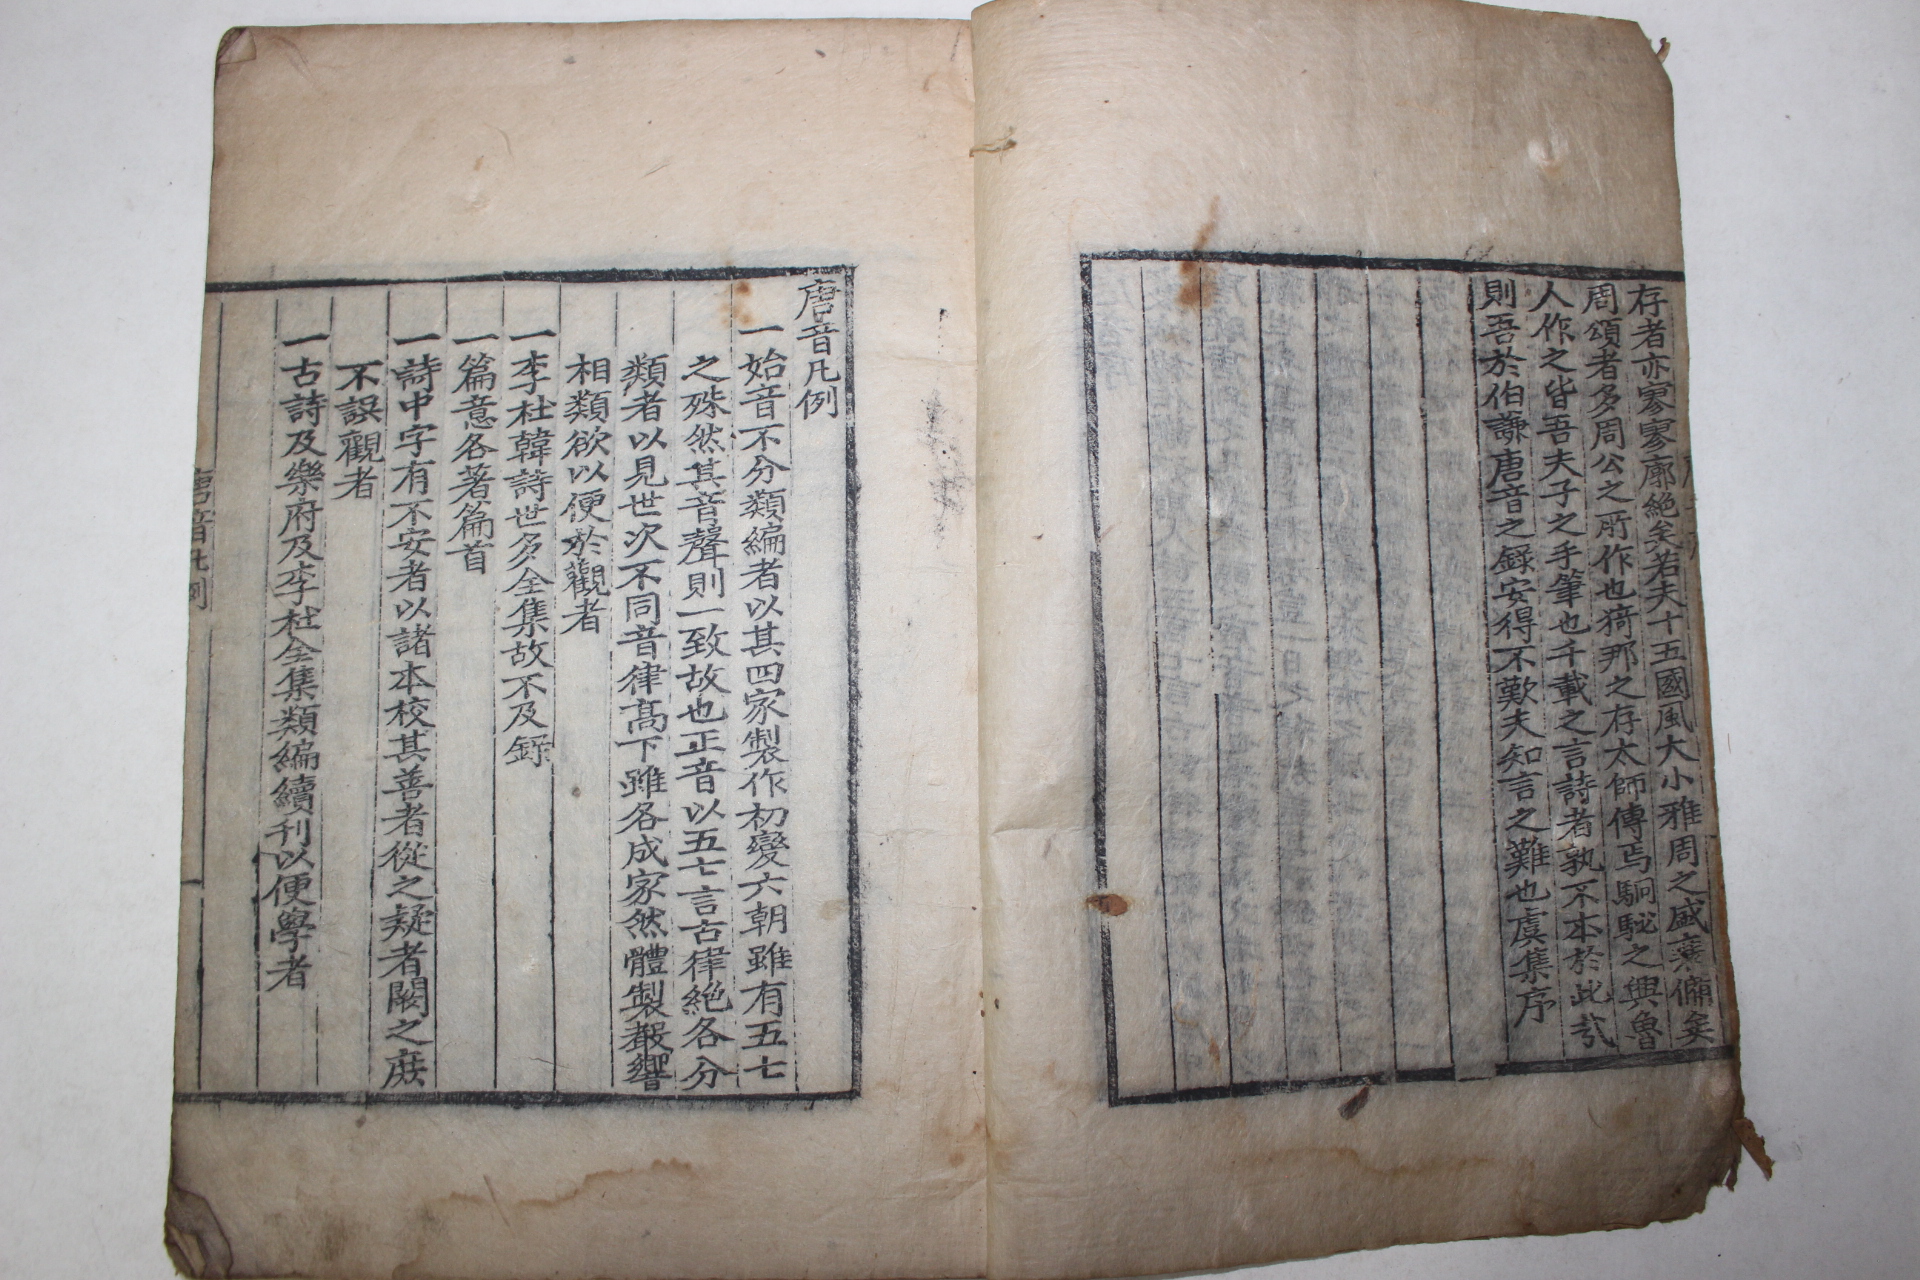 存者亦寥寥廓絶矣若夫十五國風大小雅周之盛衰備矣
周頌者多周公之所作也猗那之存太師傳焉駉駜之興魯
人作之皆吾夫子之手筆也千載之言詩者孰不本於此㢤
則吾於伯謙唐音之錄安得不歎夫知言之難也虞集序
唐音凡例
一始音不分類編者以其四家製作初變六朝雖有五七
之殊然其音聲則一致故也正音以五七言古律絶各分
類者以見世次不同音律高下雖各成家然體製聲響
相類欲以便於觀者
一李杜韓詩世多全集故不及錄
一篇意各著篇首
一詩中字有不安者以諸本校其善者從之疑者闕之庶
不誤觀者
一古詩及樂府及李杜全集類編續刊以便學者
唐音凡例
一